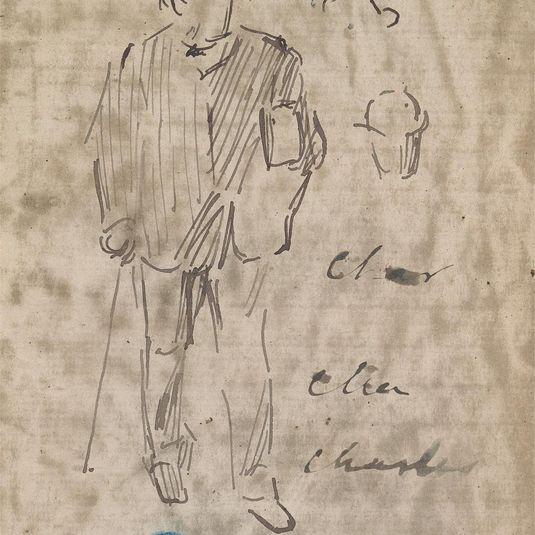 Char
Cha
Charles